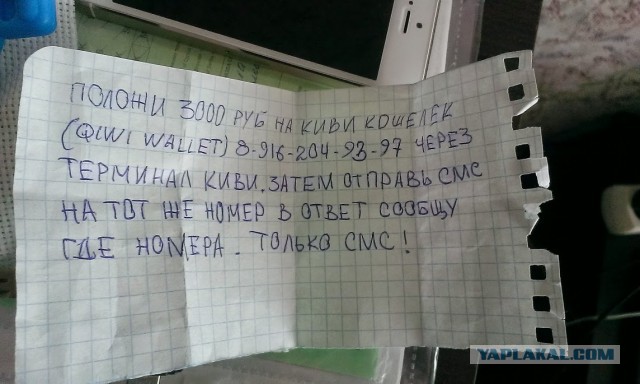 ПОЛОЖИ 3000 РУБ НА КИВИ КОШЕЛЕК
(QIWI WALLET) 8-916-204-93-97 ЧЕРЕЗ
ТЕРМИНАЛ КИВИ. ЗАТЕМ ОТПРАВЬ СМС
НА ТОТ ЖЕ НОМЕР В ОТВЕТ СООБЩУ
ГДЕ НОМЕРА. ТОЛЬКО СМС!
YAPLAKAL.COM